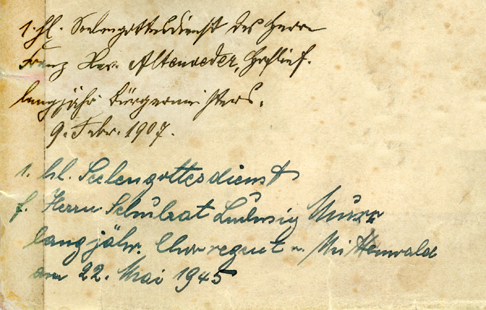 1. hl. Seelengottesdienst des Herrn
Franz Xav. Alteneder, Hoflief.
langjähr. Bürgermeisters.
9. Febr. 1907.
1. hl. Seelengottesdienst
f. Herrn Schulrat Ludwig Murr
langjähr. Chorregent v. Mittenwald
am 22. Mai 1945